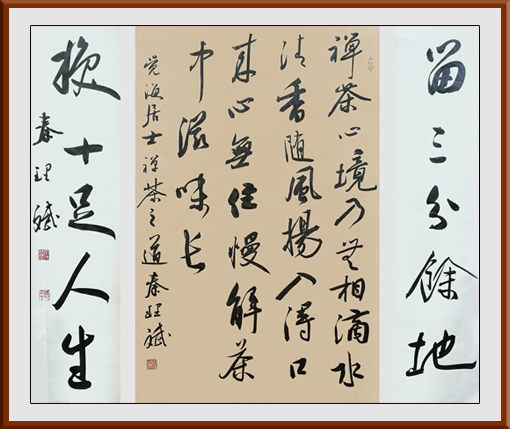 留三分餘地
禅茶心境乃無相滴水
清香随風揚入得口
来心無住慢解茶
中滋味长
觉海居士禅茶之道秦理斌
换十足人生
秦理斌